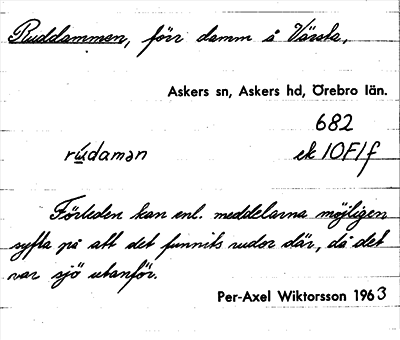 Ruddammen, förr damm å Värsta,
Askers sn, Askers hd, Örebro län.
682
rúdamən ek 10F1f
Förleden kan enl. meddelarna möjligen
syfta på att det funnits rudor där, då det
var sjö utanför.
Per-Axel Wiktorsson 1963